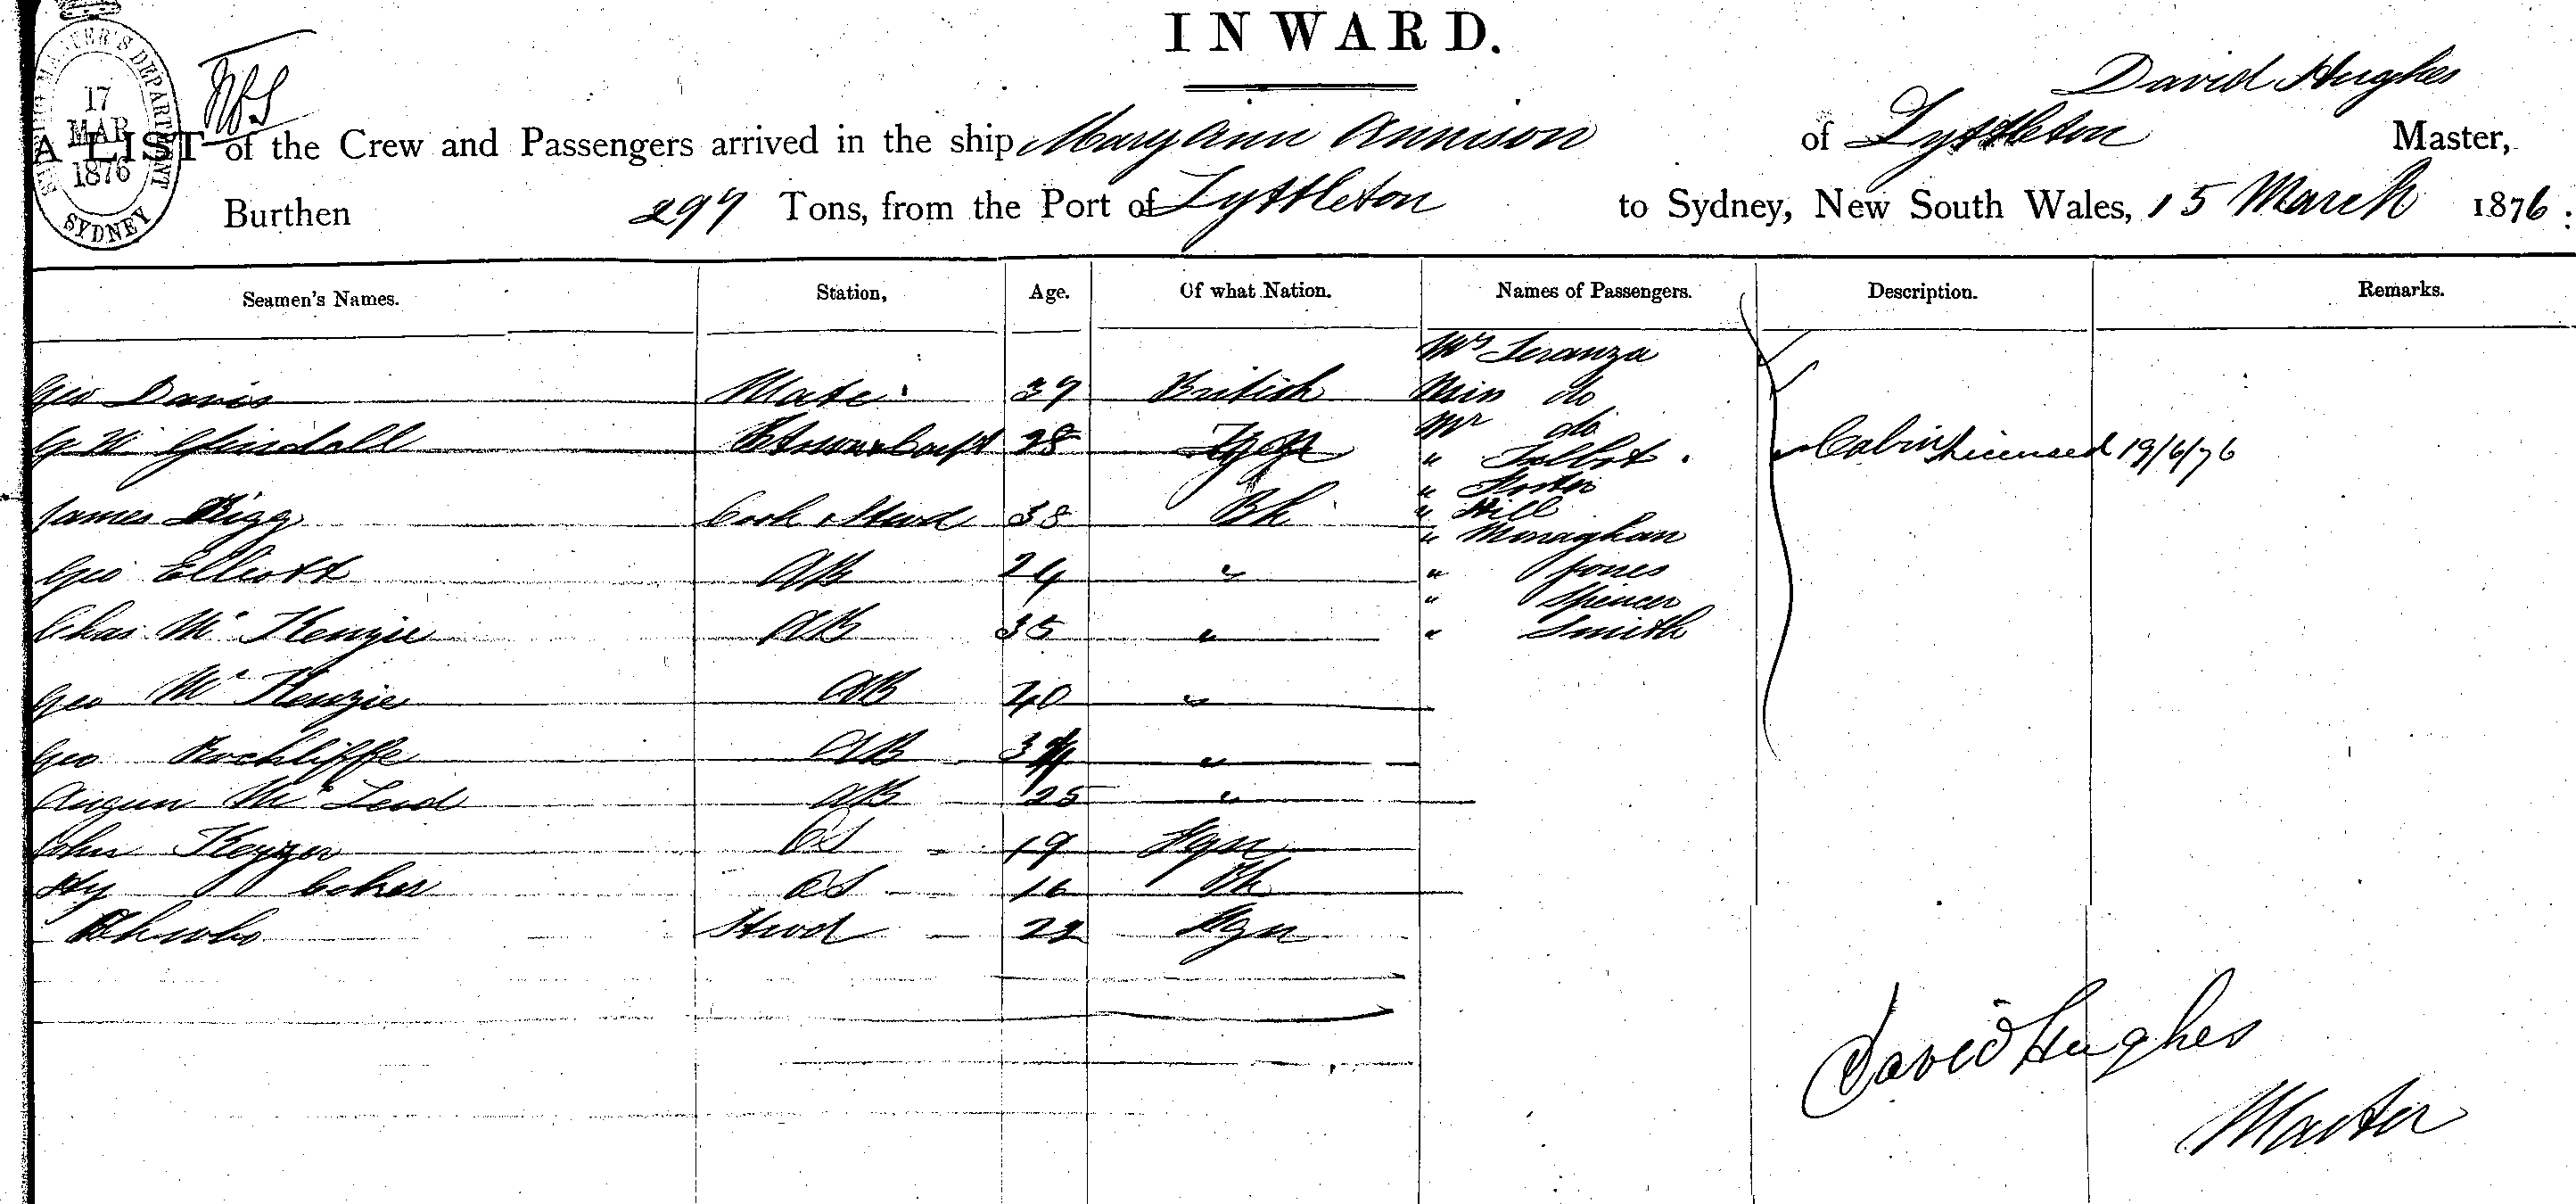 INWARD.
SHIPPING MASTER'S DEPARTMENT
17
MAR
1876
SYDNEY
David Hughes
A LIST of the Crew and Passengers arrived in the ship Mary Ann Annison of Lyttleton Master,
Burthen 297 Tons, from the Port of Lyttleton to Sydney, New South Wales, 15 March 1876.
Seamen's Names. Station, Age. Of what Nation. Names of Passengers. Description. Remarks.
Mrs Seranza
Geo Davis Mate 37 British Miss do
Mr do
G. W. 28 " Talbot. Cabin Licensed 19/6/76
" Foster
James Rigg Cook & Stwd 38 Bh " Hill
" Monaghan
Geo Elliott AB 24 " " Jones
" Spencer
Chas McKenzie AB 35 " " Smith
Geo McKenzie AB 40 "
Geo Rochliffe AB 34 "
Angun McLeod AB 25 "
John Keyzer OS 19 Fgn
Hy Coker OS 16 Bh
Ahwho Stwd 22 Fgn
David Hughes
Master